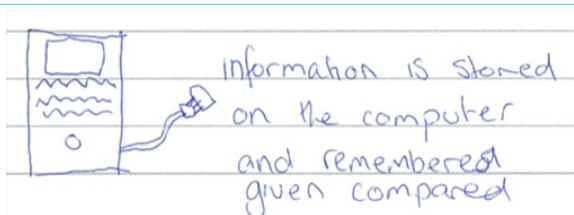 information is stored
on the computer
and remembered
given compared